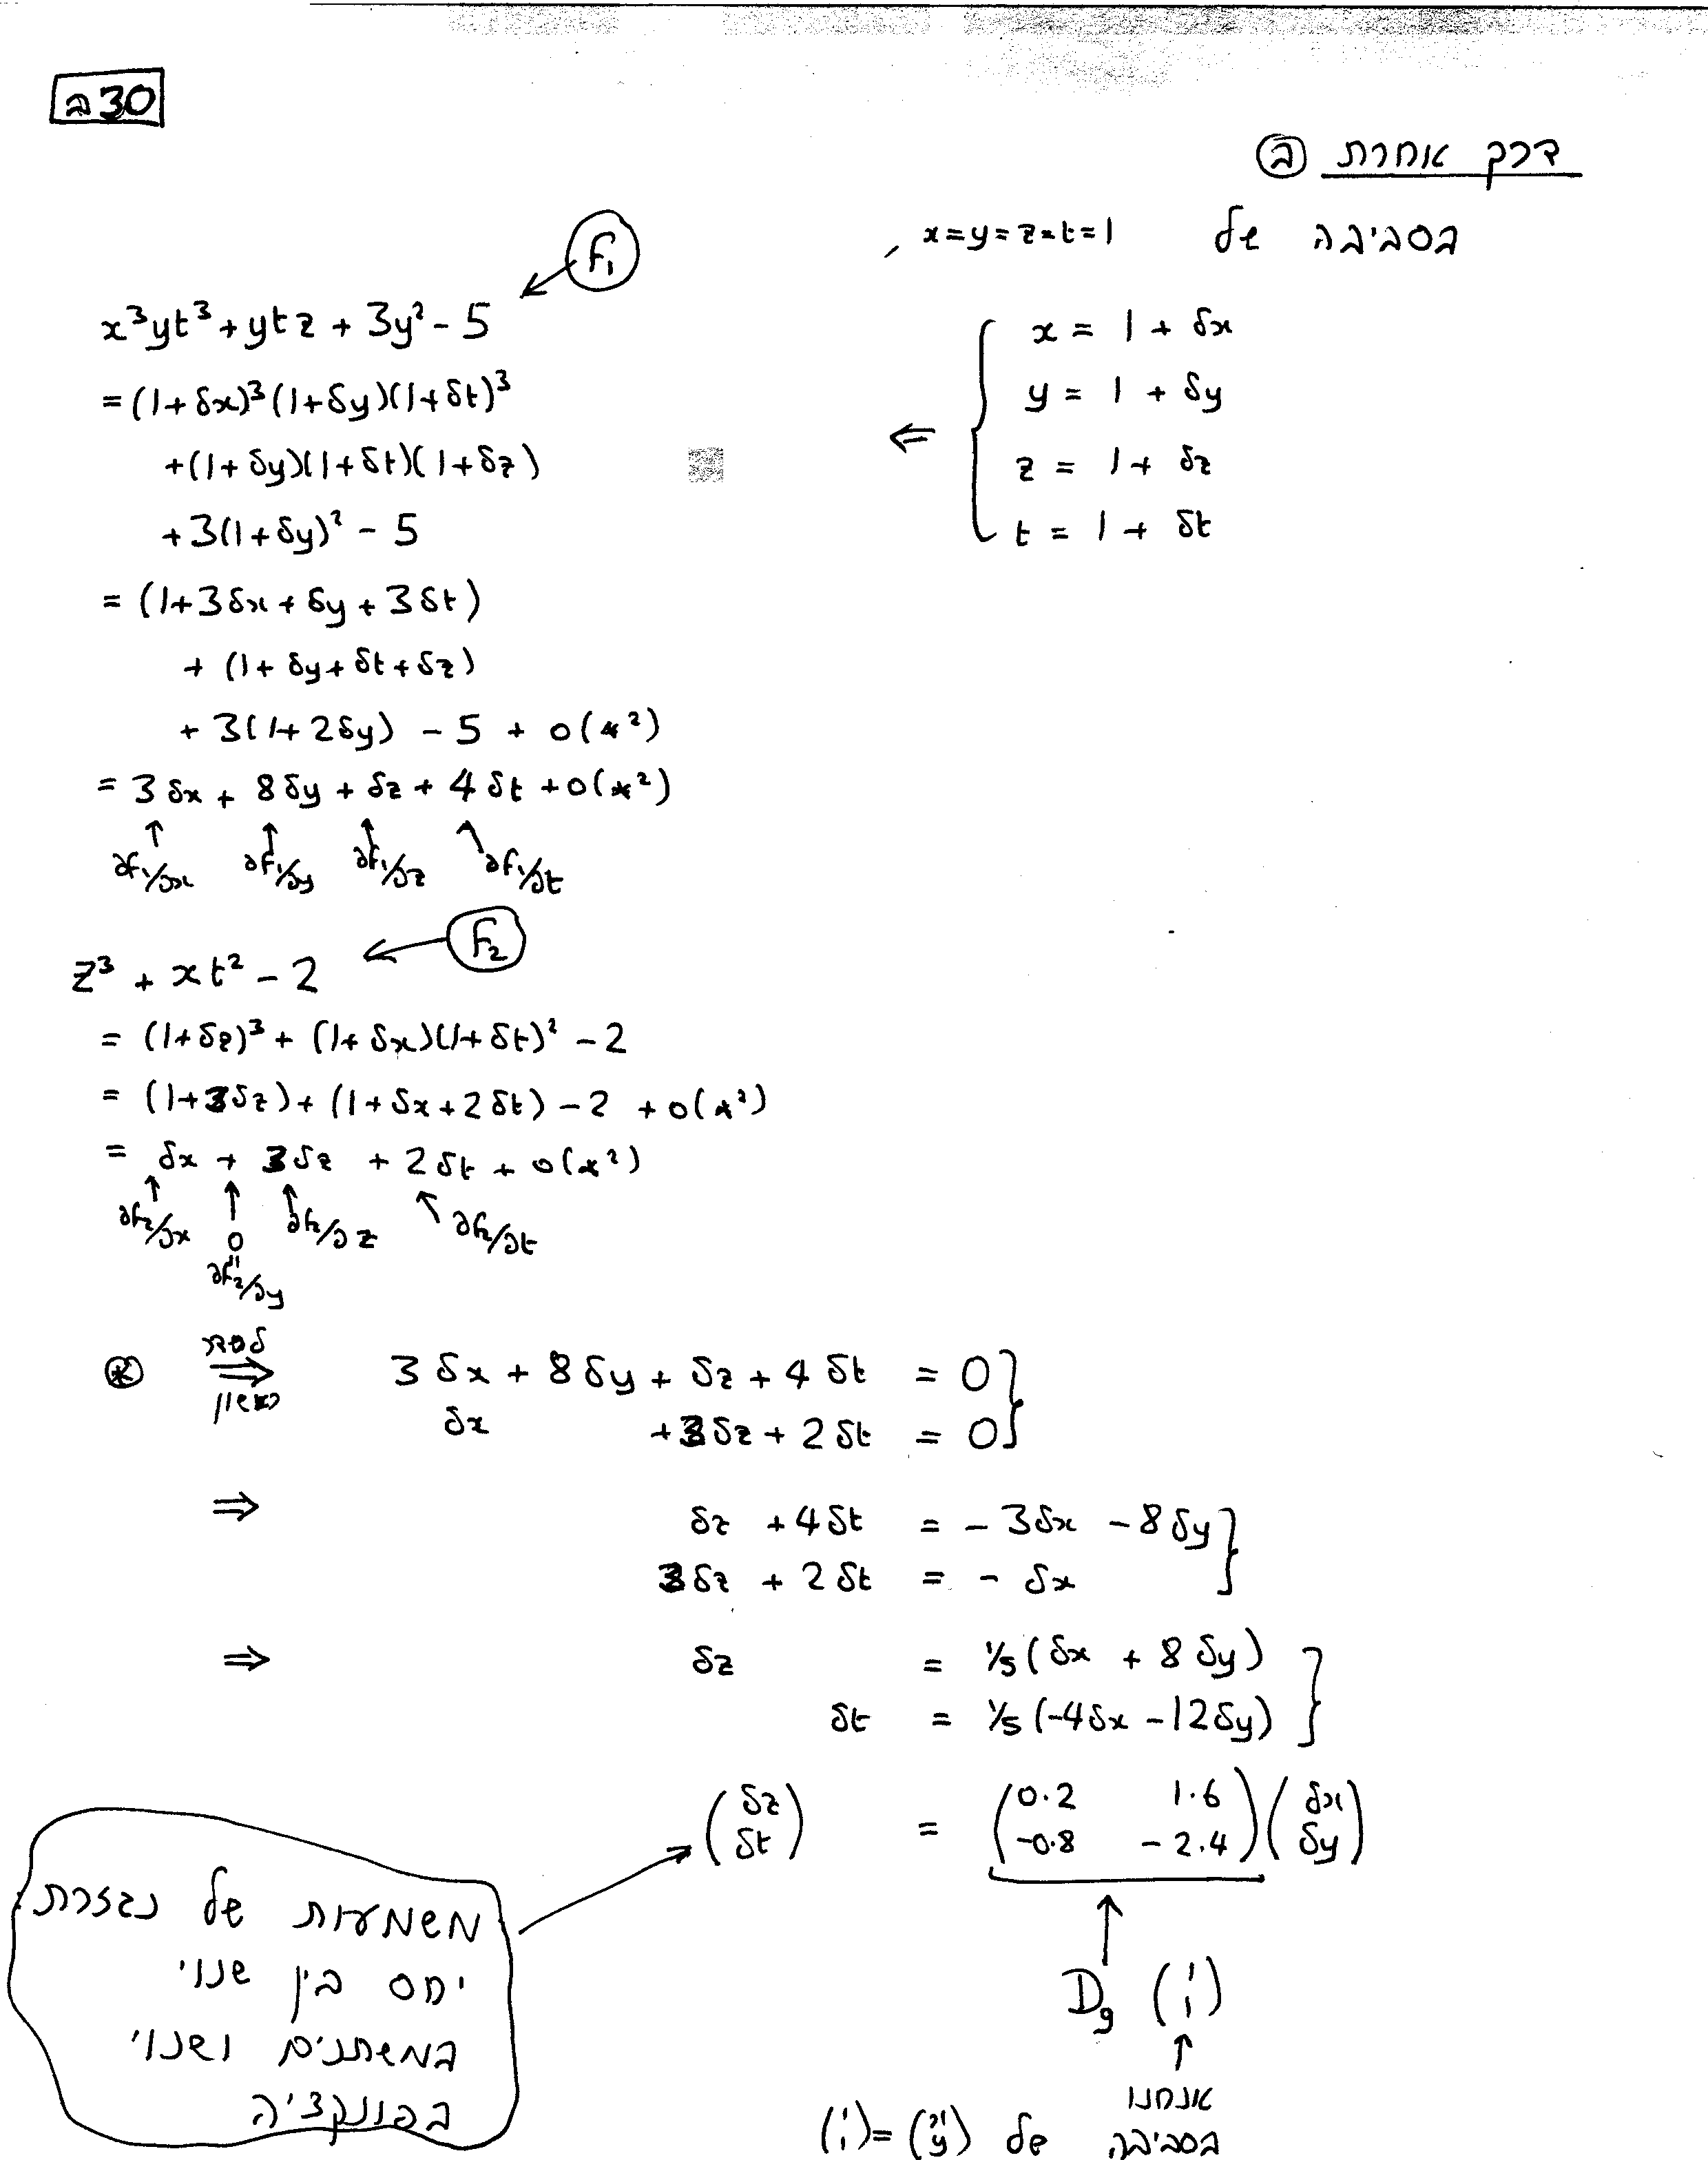 30ב
דרך אחרת ב
בסביבה של x=y=z=t=1,
x = 1 + δx
y = 1 + δy
z = 1 + δz
t = 1 + δt
⇐
F₁
x³yt³ + ytz + 3y² - 5
= (1+δx)³(1+δy)(1+δt)³
+(1+δy)(1+δt)(1+δz)
+3(1+δy)² - 5
= (1+3δx+δy+3δt)
+ (1+δy+δt+δz)
+ 3(1+2δy) - 5 + o(*²)
= 3δx + 8δy + δz + 4δt + o(*²)
↑ ↑ ↑ ↑
∂F₁/∂x ∂F₁/∂y ∂F₁/∂z ∂F₁/∂t
F₂
z³ + xt² - 2
= (1+δz)³ + (1+δx)(1+δt)² - 2
= (1+3δz) + (1+δx+2δt) - 2 + o(*²)
= δx + 3δz + 2δt + o(*²)
↑ ↑ ↑ ↑
∂F₂/∂x 0 ∂F₂/∂z ∂F₂/∂t
"
∂F₂/∂y
⊛ לסדר ⇒ ראשון 3δx + 8δy + δz + 4δt = 0
δx + 3δz + 2δt = 0
⇒ δz + 4δt = - 3δx - 8δy
3δz + 2δt = - δx
⇒ δz = 1/5(δx + 8δy)
δt = 1/5(-4δx - 12δy)
(δz δt) = (0.2 1.6 -0.8 -2.4)(δx δy)
↑
D_g (1 1)
↑
אנחנו
בסביבה של (x y) = (1 1)
משמעות של נגזרת
יחס בין שנוי
במשתנים ושנוי
בפונקציה